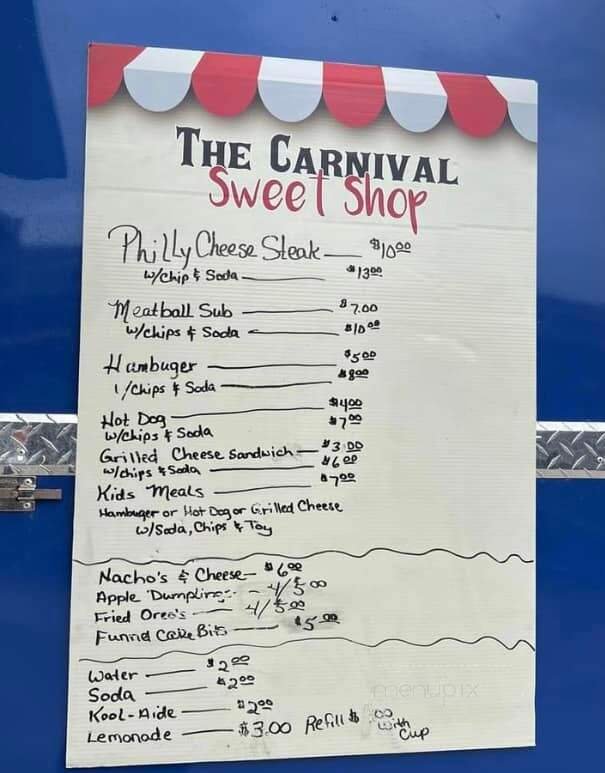 THE CARNIVAL
Sweet Shop
Philly Cheese Steak $10.00
w/chip & Soda $13.00
Meatball Sub $7.00
w/chips & Soda $10.00
Hambuger $5.00
1/chips & Soda $8.00
Hot Dog $4.00
w/chips & Soda $7.00
Grilled Cheese Sandwich $3.00
w/chips & Soda $6.00
Kids Meals $7.00
Hambuger or Hot Dog or Grilled Cheese
w/Soda, Chips & Toy
Nacho's & Cheese $6.00
Apple Dumplings 4/5.00
Fried Oreo's 4/5.00
Funnel Cake Bits $5.00
Water $2.00
Soda $2.00
Kool-Aide $2.00
Lemonade $3.00 Refill $ with
Cup
menupix